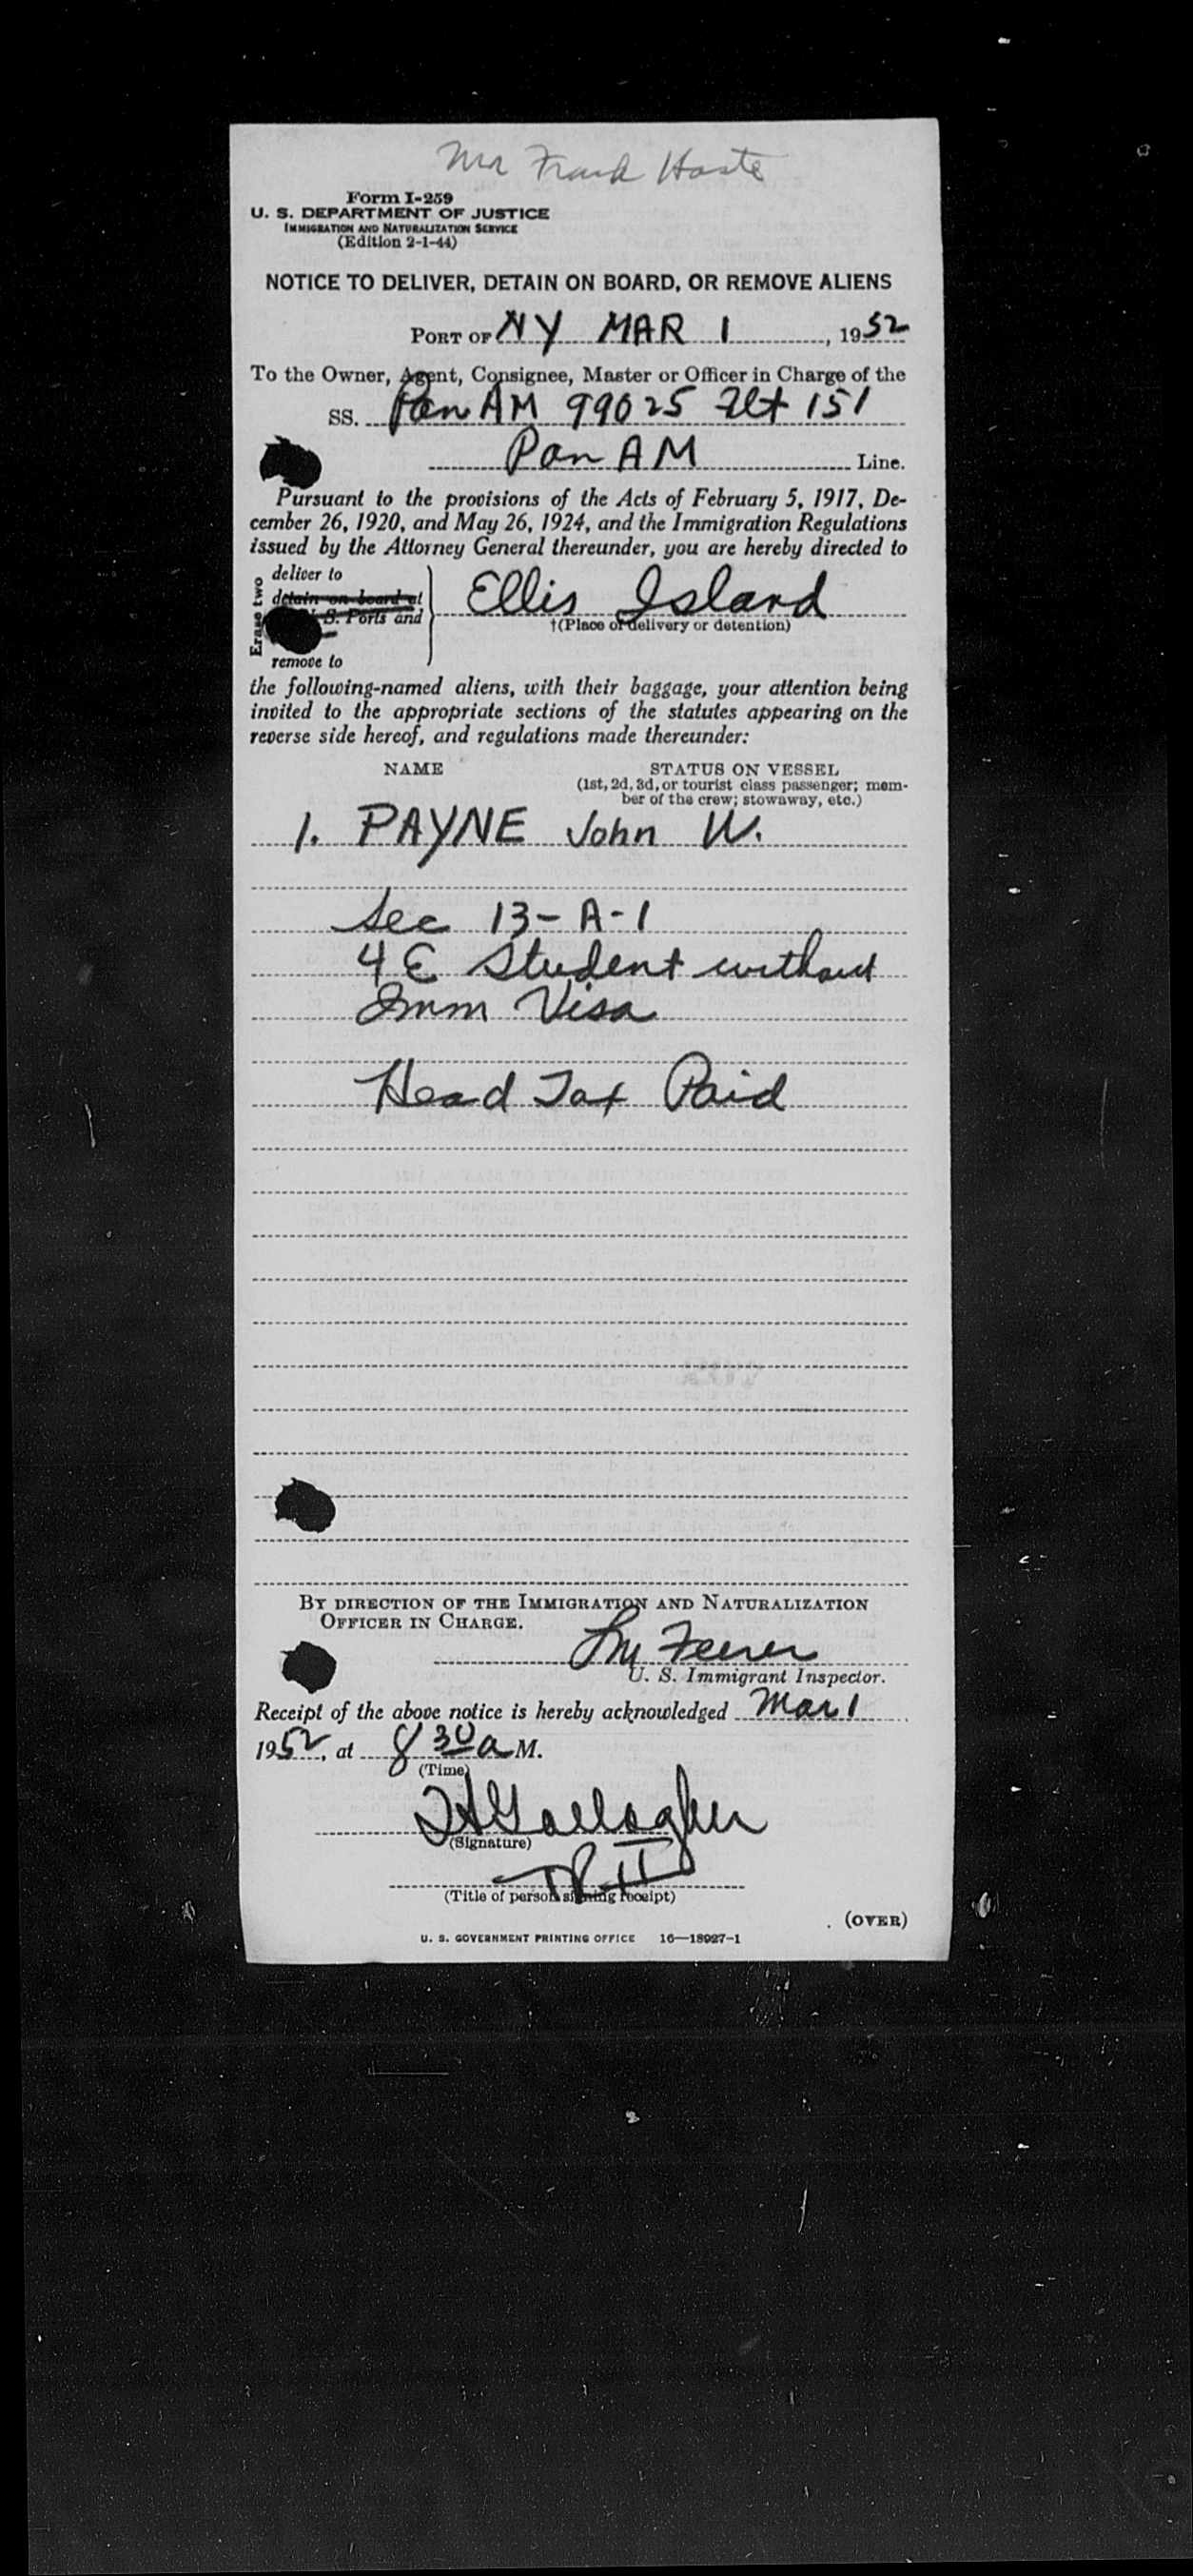 Mr Frank Haste
Form I-259
U. S. DEPARTMENT OF JUSTICE
IMMIGRATION AND NATURALIZATION SERVICE
(Edition 2-1-44)
NOTICE TO DELIVER, DETAIN ON BOARD, OR REMOVE ALIENS
PORT OF NY MAR 1, 1952
To the Owner, Agent, Consignee, Master or Officer in Charge of the
SS. Pan AM 99025 Flt 151
Pan AM Line.
Pursuant to the provisions of the Acts of February 5, 1917, De-
cember 26, 1920, and May 26, 1924, and the Immigration Regulations
issued by the Attorney General thereunder, you are hereby directed to
Erase two
deliver to
detain on board at
S. Ports and
remove to
Ellis Island
†(Place of delivery or detention)
the following-named aliens, with their baggage, your attention being
invited to the appropriate sections of the statutes appearing on the
reverse side hereof, and regulations made thereunder:
NAME STATUS ON VESSEL
(1st, 2d, 3d, or tourist class passenger; mem-
ber of the crew; stowaway, etc.)
1. PAYNE John W.
Sec 13-A-1
4 E Student without
Imm Visa
Head Tax Paid
BY DIRECTION OF THE IMMIGRATION AND NATURALIZATION
OFFICER IN CHARGE.
U. S. Immigrant Inspector.
Receipt of the above notice is hereby acknowledged Mar 1
1952, at 8 30 a M.
(Time)
Gallagher
(Signature)
(Title of person signing receipt)
(OVER)
U. S. GOVERNMENT PRINTING OFFICE 16—18927-1